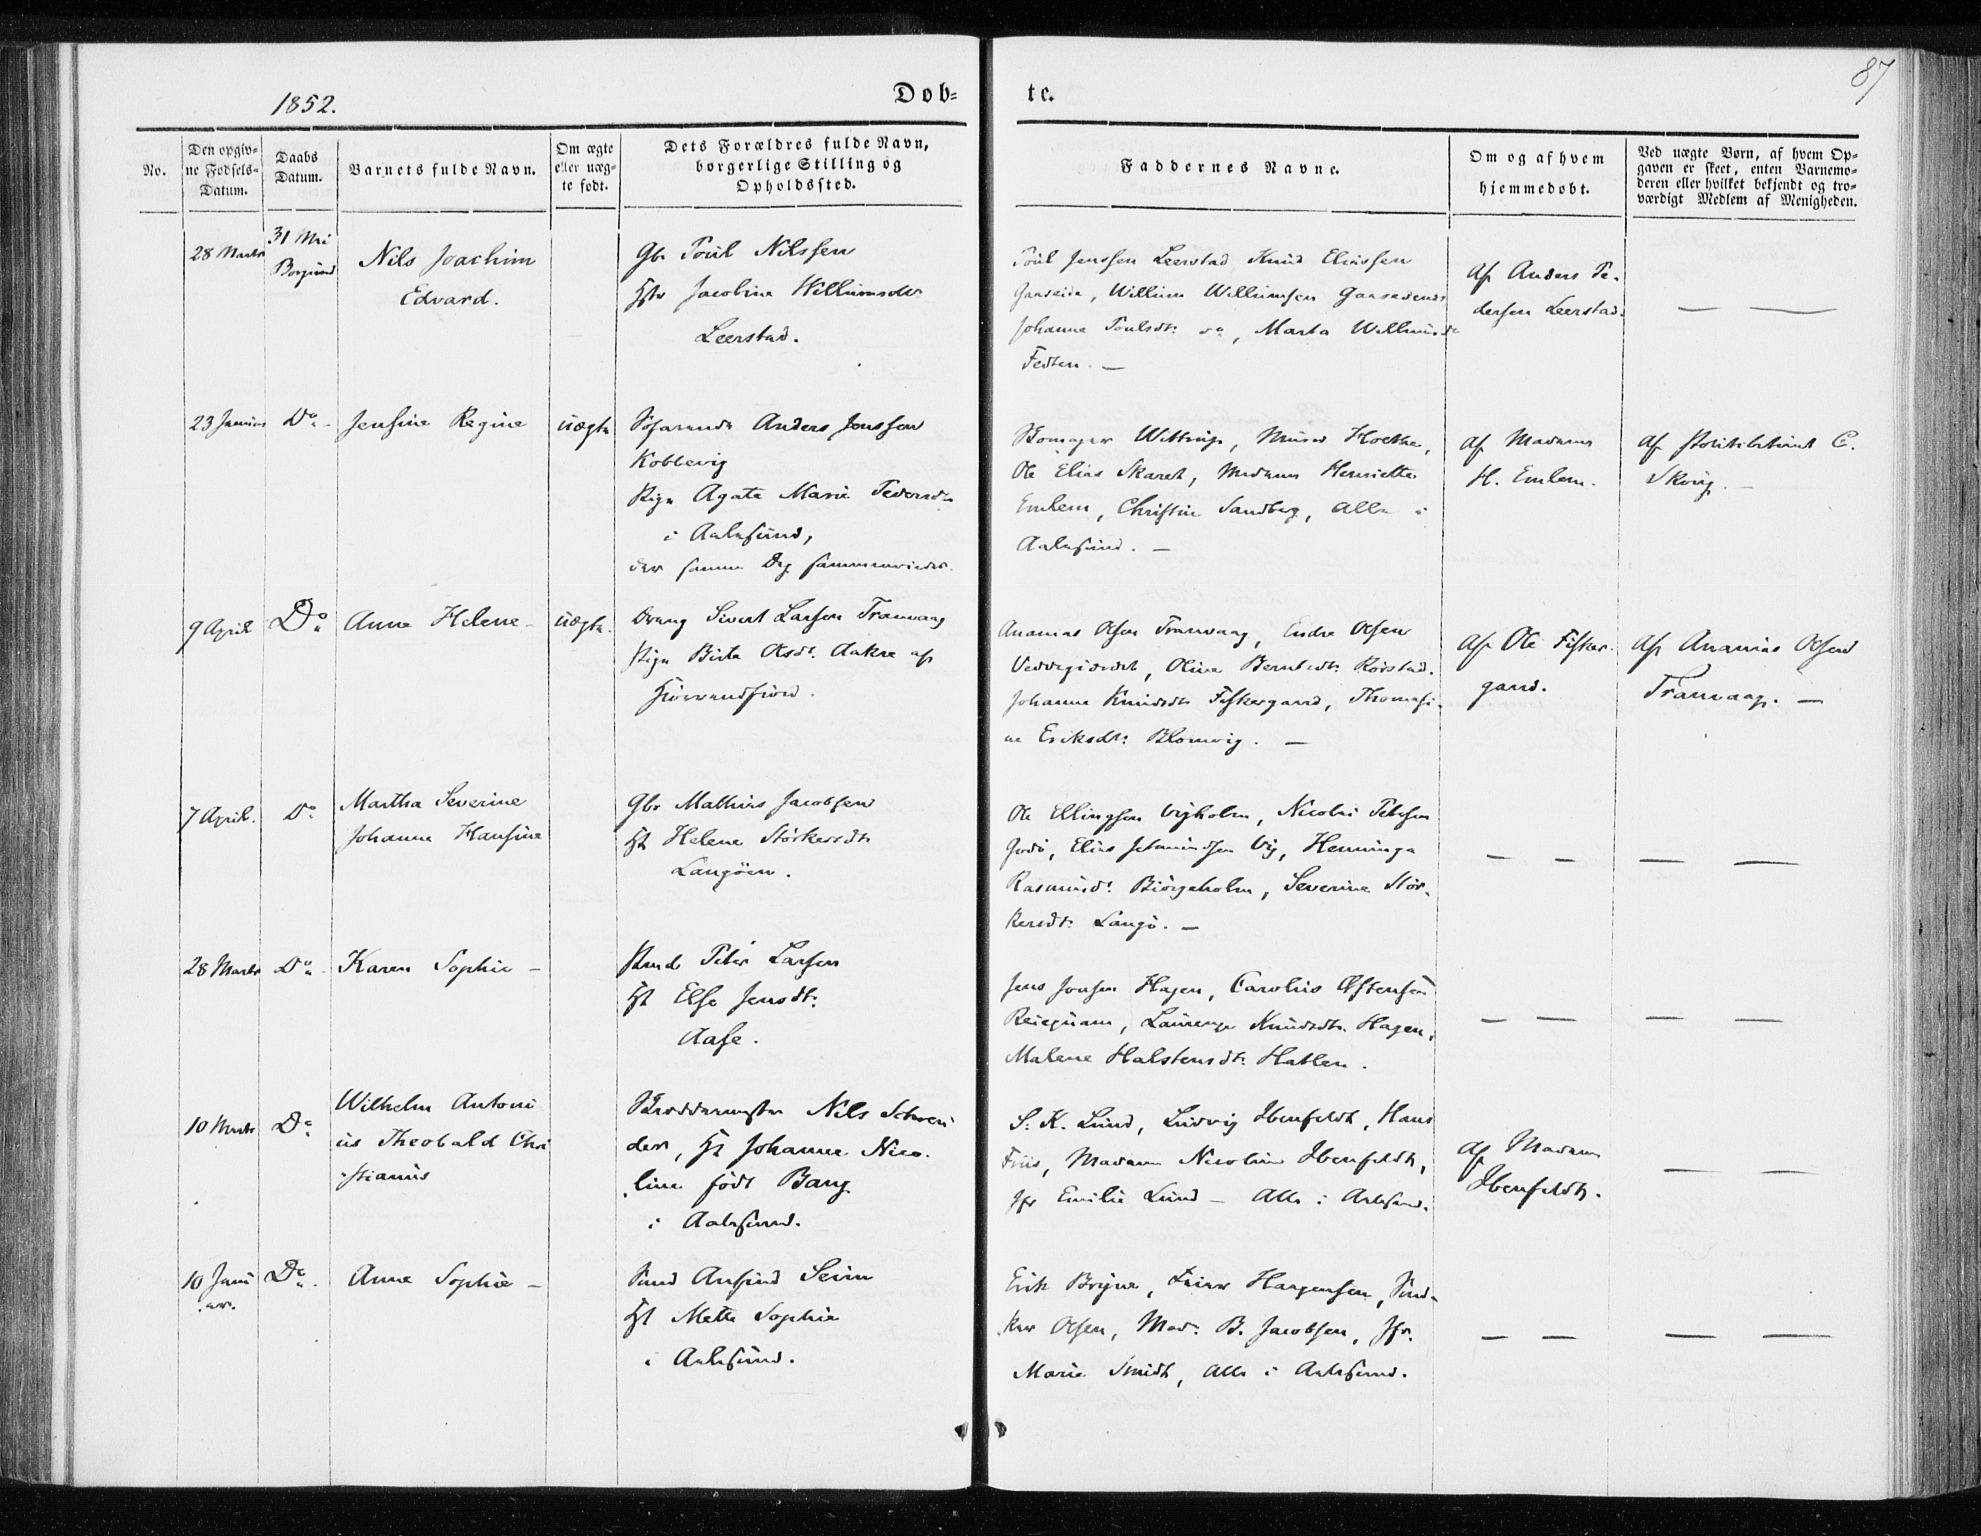 1852.
Døb=
te.
87
No.
Den opgiv=
ne Fødsels=
Datum.
Daabs
Datum.
Barnets fulde Navn.
Om ægte
eller uæg=
te født.
Dets Forældres fulde Navn,
borgerlige Stilling og
Opholdssted.
Faddernes Navne.
Om og af hvem
hjemmedøbt.
Ved uægte Børn, af hvem Op=
gaven er skeet, enten Barnemo=
deren eller hvilket bekjendt og tro=
værdigt Medlem af Menigheden.
28 Marts
31 Mai
Borgund
Nils Joachim
Edvard.
Gbr Poul Nilssen
Hst Jacobine Willumsdtr
Leerstad.
Poul Jenssen Leerstad Knud Eliassen
Gaaseide, Willum Willumsen
Johanne Poulsdt: do, Marta
Fedten. —
Af Anders Pe-
dersen Leerstad.
23 Januar
Do
Jensine Regine
uægte
Søfarende Anders Jenssen
Koblevig
Pige Agate Marie Pedersdtr
i Aalesund,
der samme Dag
Ole Elias Skaret, Madame Henriette
Emlem, Christine Sandberg, Alle i
Aalesund. —
af Madame
H. Emlem.
af Politibetjent C.
9 April
Do
Anne Helene
uægte.
Dreng Sivert Larsen Tranvaag
Pige Birte Olsdt. Aakre af
Hiørrendfiord.
Ananias Olsen Tranvaag, Endre Olsen
Veddegierdet, Oline Berntsdt: Rørstad.
Johanne Knudsdt: Fiskergaard, Thomasi-
ne Eriksdt: Blomvig. —
Af Ole Fisker-
gaard.
Af Ananias Olsen
Tranvaag. —
7 April.
Do
Martha Severine
Johanne Hansine
Gbr Mathias Jacobsen
Hst Helene Størkersdt:
Langøen.
Ole Ellingsen Vigholm, Nicolai Petersen
Godø, Elias Vig, Henninga
Rasmusdt: Biørgeholm, Severine Stør-
kersdt: Langø. —
28 Marts
Do
Karen Sophie —
Peter Larsen
Hst Else Jensdt:
Aase.
Jens Jonsen Hagen, Carolius
Knudsdt: Hagen,
Malene Halstensdt: Hatlen.
10 Marts
Do
Wilhelm Antoni
us Theobald Chri
stianus
Nils Schrei
der, Hst Johanne Nico-
line født Bang
i Aalesund.
S. K. Lund, Ludvig Ibenfeldt, Hans
Friis, Madame Nicoline Ibenfeldt,
Jfr Emilie Lund — Alle i Aalesund.
af Madame
Ibenfeldt.
10 Janu
ar.
Do
Anne Sophie —
Ansind Seim
Hst Mette Sophie
i Aalesund.
Erik Bryne, Haagensen,
Olsen, Mad: B. Jacobsen, Jfr.
Marie Smidt, Alle i Aalesund.